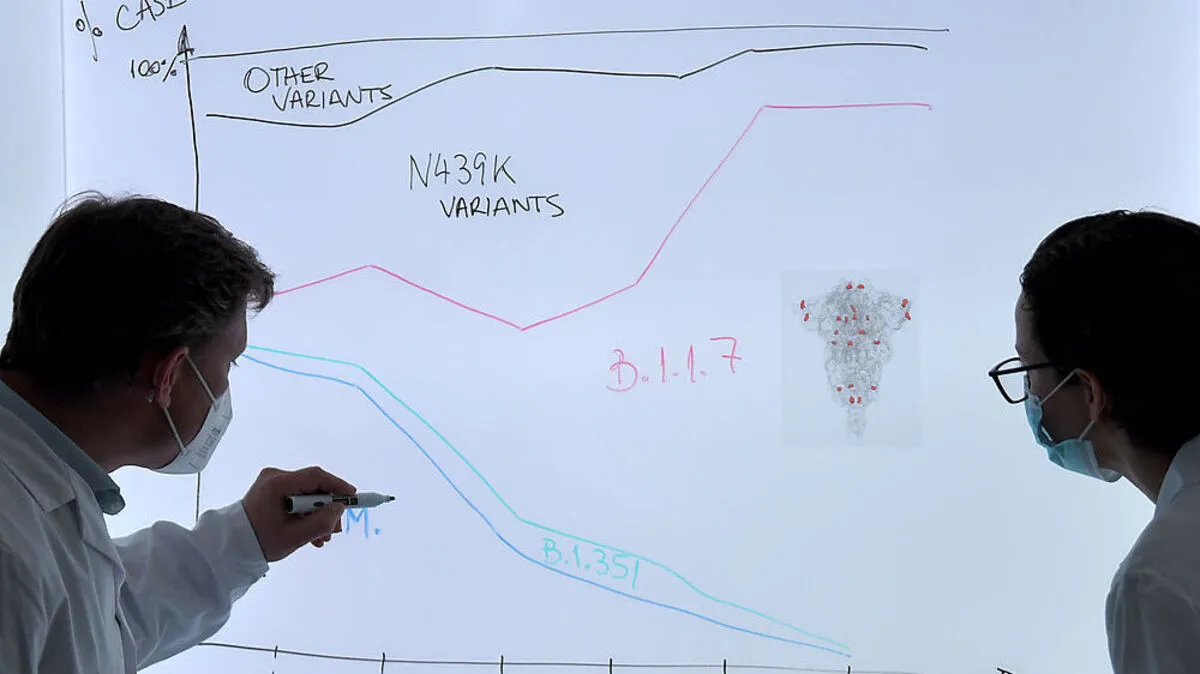 %
100%
OTHER
VARIANTS
N439K
VARIANTS
B.1.1.7
M.
B.1.351